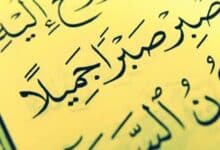 إِلَيْهِ
صْبِرْ صَبْرًا جَمِيلًا
ونُ السَّ